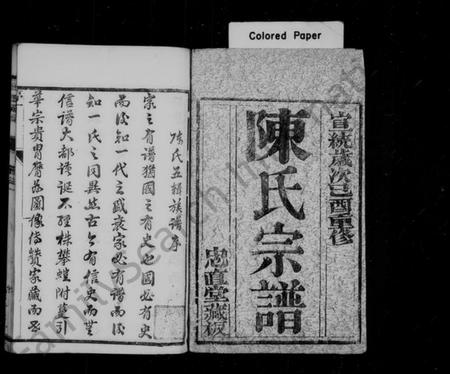 Colored Paper
宣統歲次己酉重修
陳氏宗譜
忠直堂藏板
陳氏五修族譜序
家之有譜猶國之有史也國必有史
而後知一代之盛衰家必有譜而後
知一氏之同異然古今有信史而無
信譜大都誇誕不經株攀蔓附蔓引
華宗貴冑
圖像傳贊家藏而
FamilySearch International